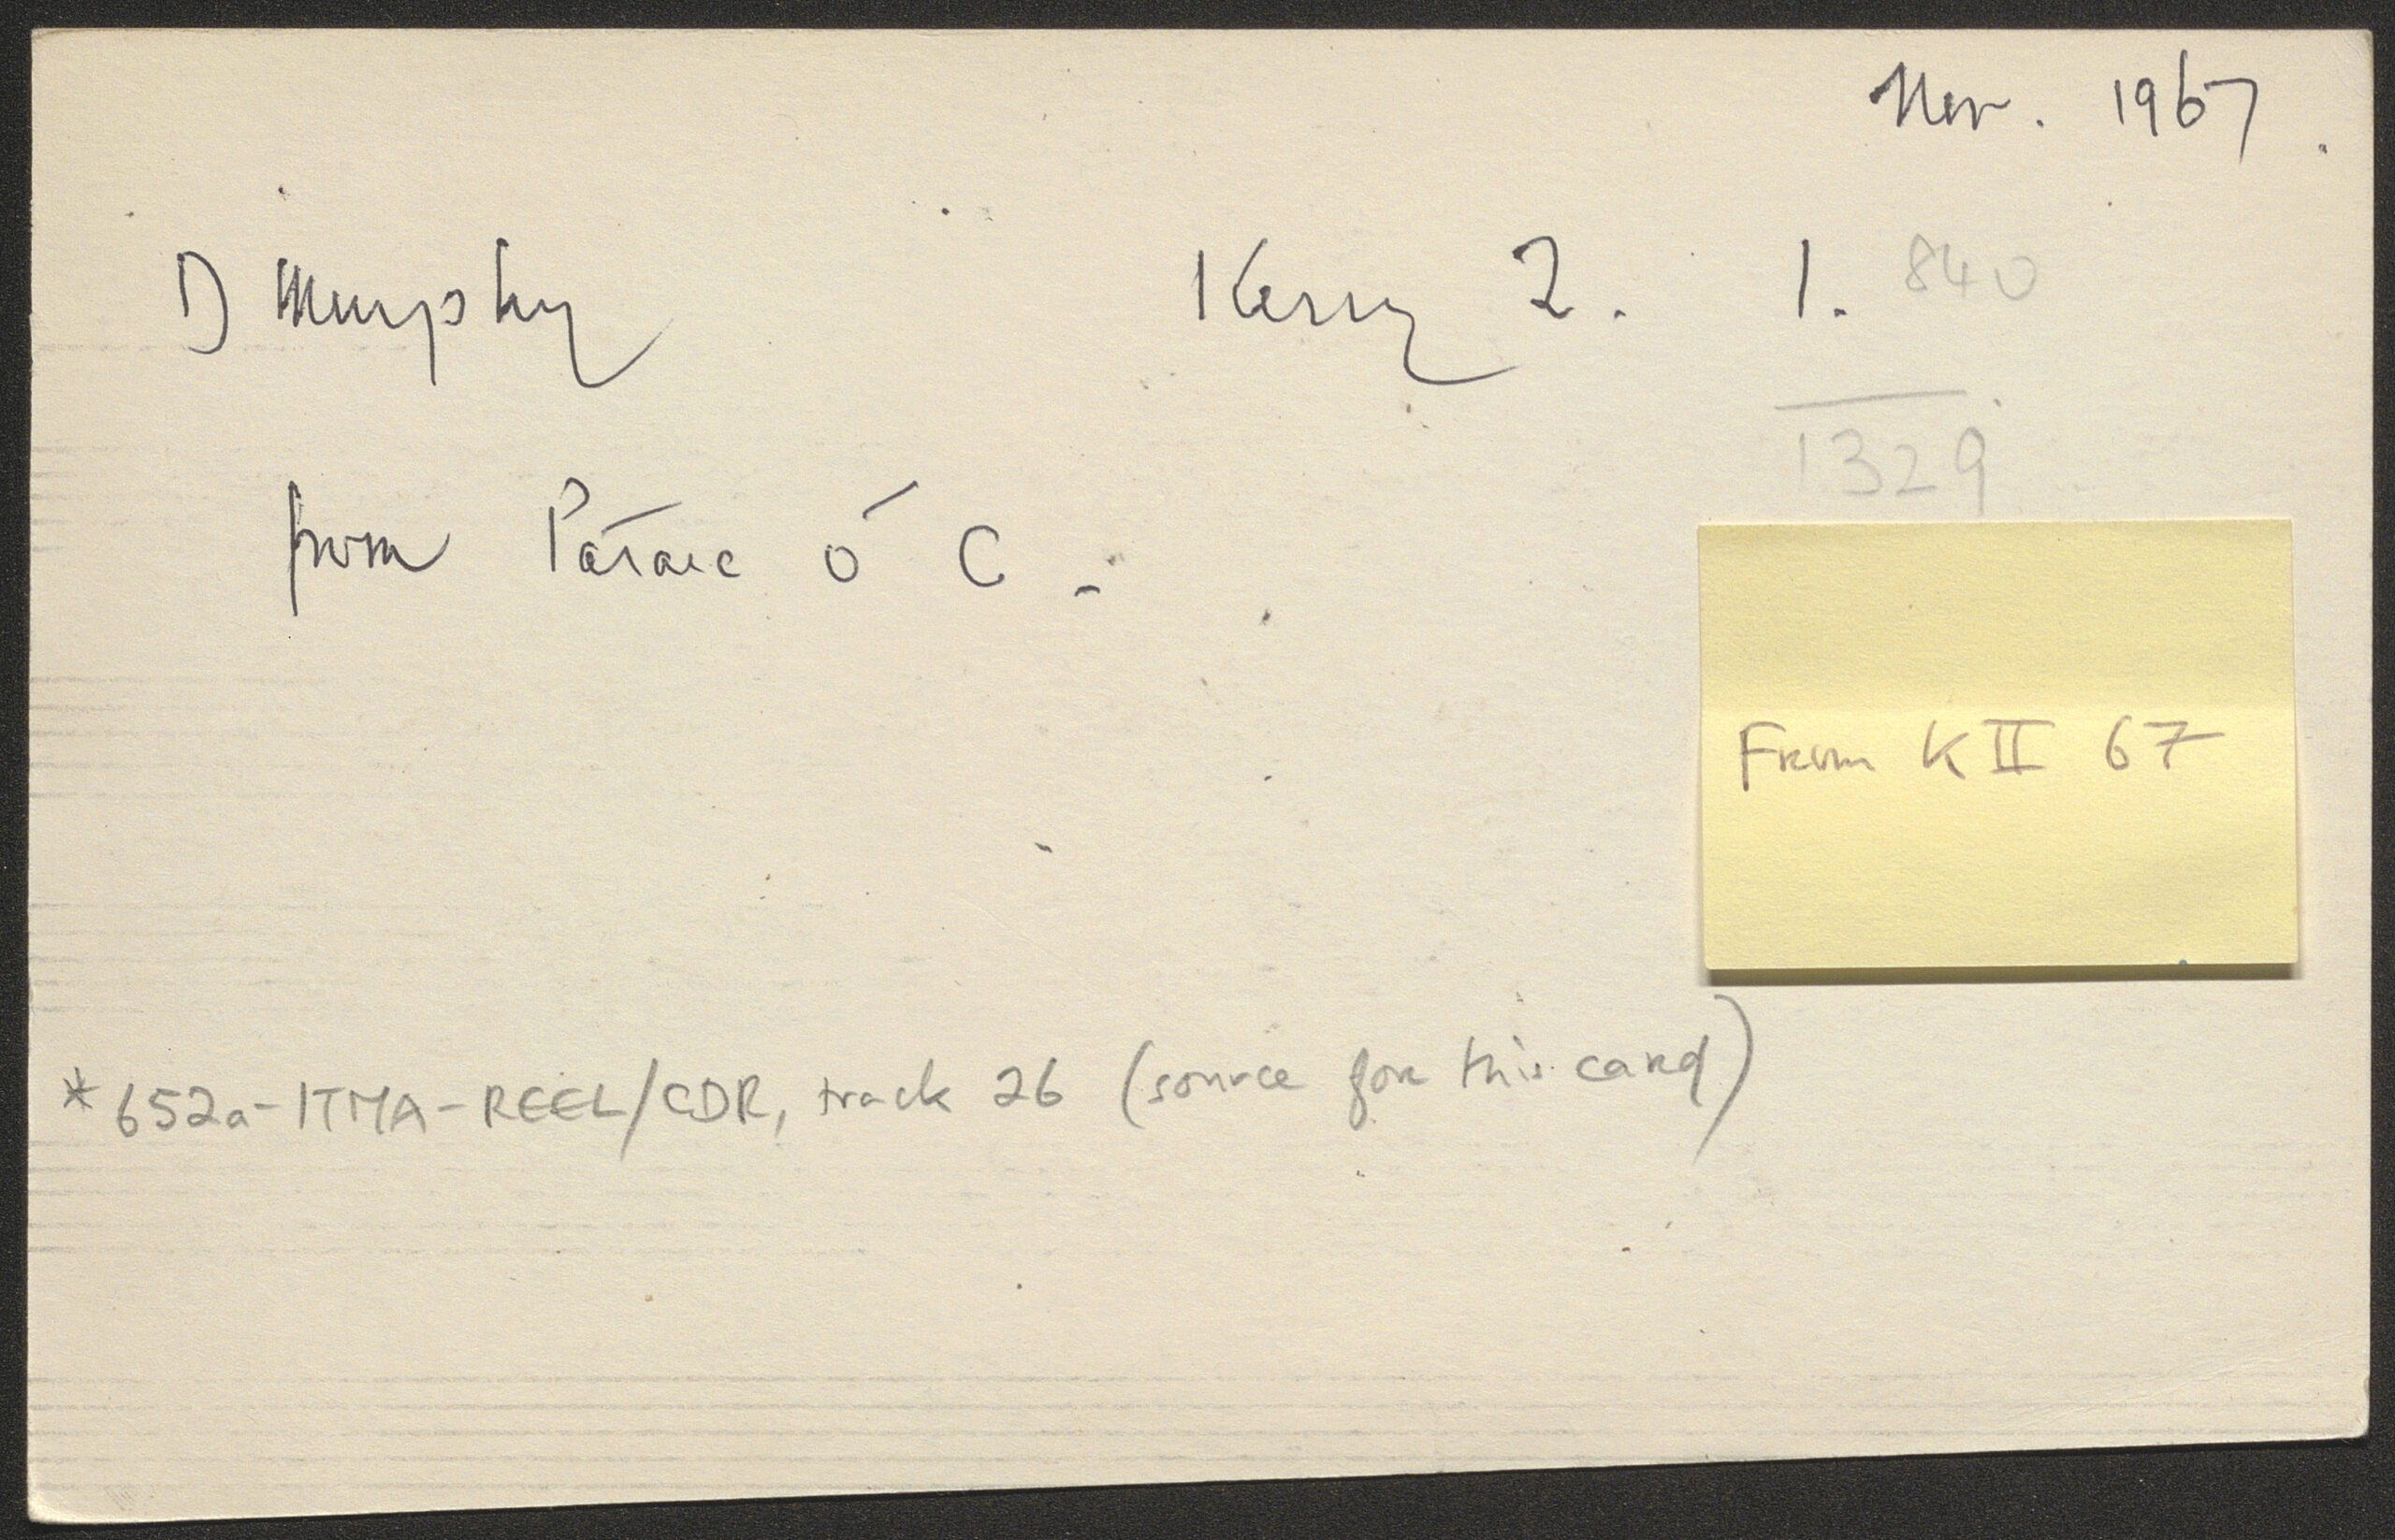 Nov. 1967.
D Murphy Kerry 2. 1. 840
1329
from Pátraic Ó C.
From K II 67
*652a-ITMA-REEL/CDR, track 26 (source for this card)